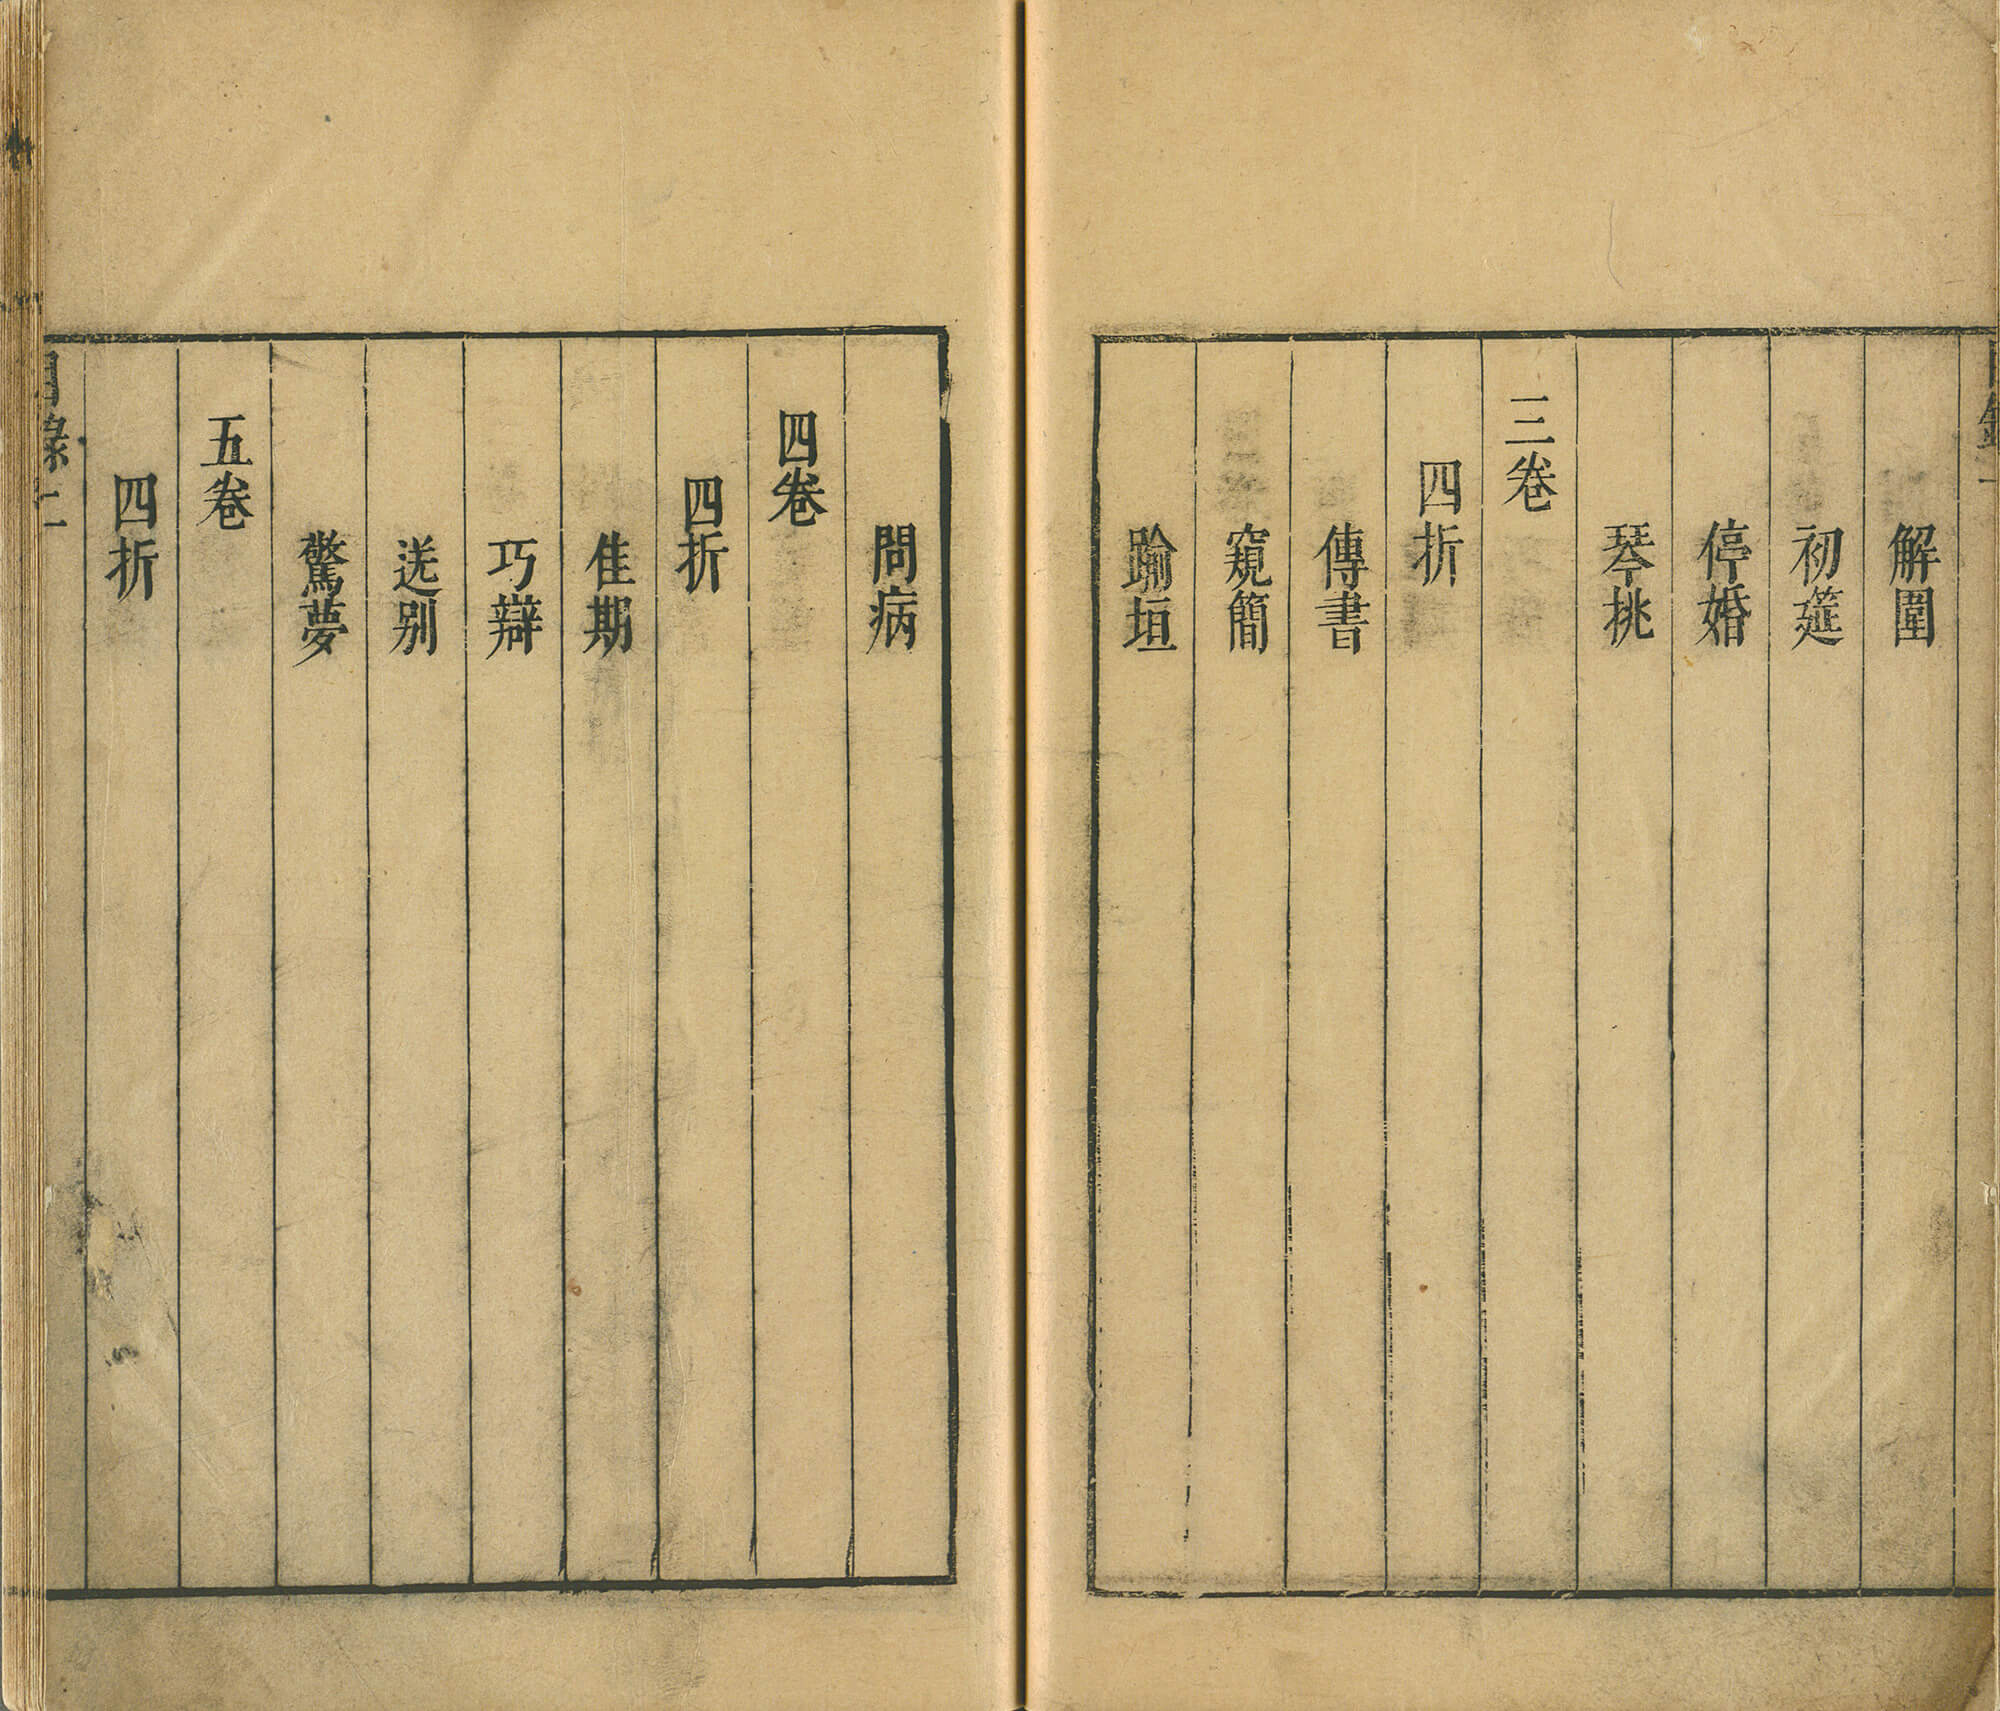 解圍
初筵
停婚
琴挑
三卷
四折
傳書
窺簡
踰垣
問病
四卷
四折
佳期
巧辯
送别
驚夢
五卷
四折
目錄二